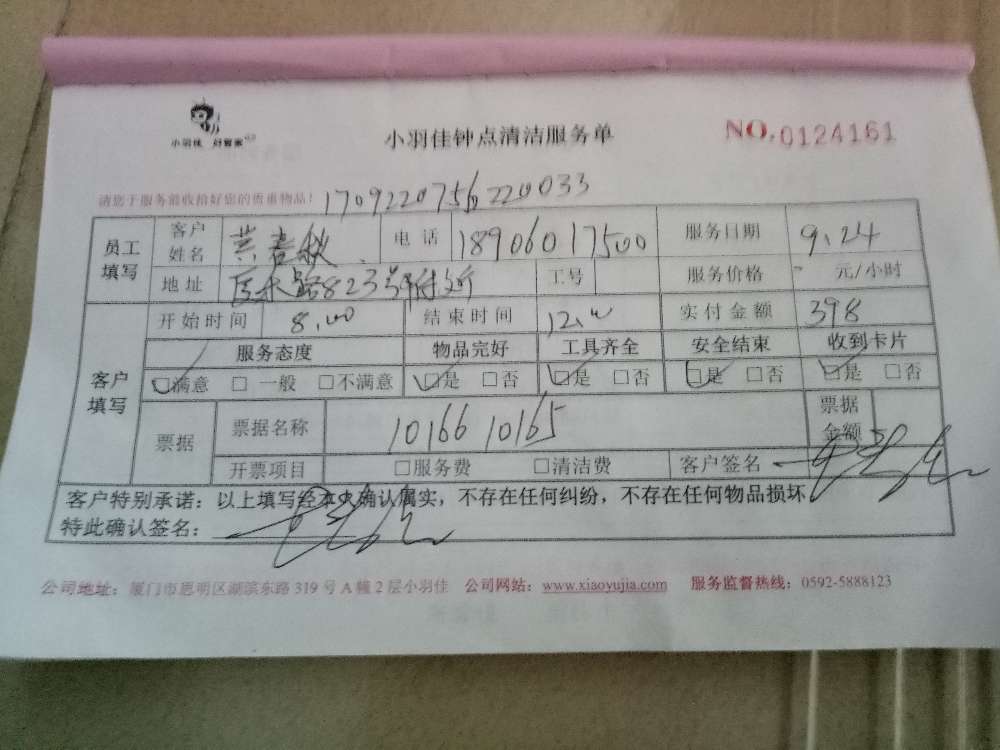 小羽佳 好管家
小羽佳钟点清洁服务单
NO.0124161
请您于服务前收拾好您的贵重物品!
员工填写 客户姓名 电话 18906017500 服务日期 9.24
地址 路823号 工号 服务价格 元/小时
客户填写 开始时间 8.00 结束时间 12.00 实付金额 398
服务态度 物品完好 工具齐全 安全结束 收到卡片
满意 一般 不满意 是 否 是 否 是 否 是 否
票据 票据名称 10166 10165 票据金额
开票项目 服务费 清洁费 客户签名
客户特别承诺：以上填写经本人确认属实，不存在任何纠纷，不存在任何物品损坏
特此确认签名：
公司地址：厦门市思明区湖滨东路319号A幢2层小羽佳 公司网站：www.xiaoyujia.com 服务监督热线：0592-5888123